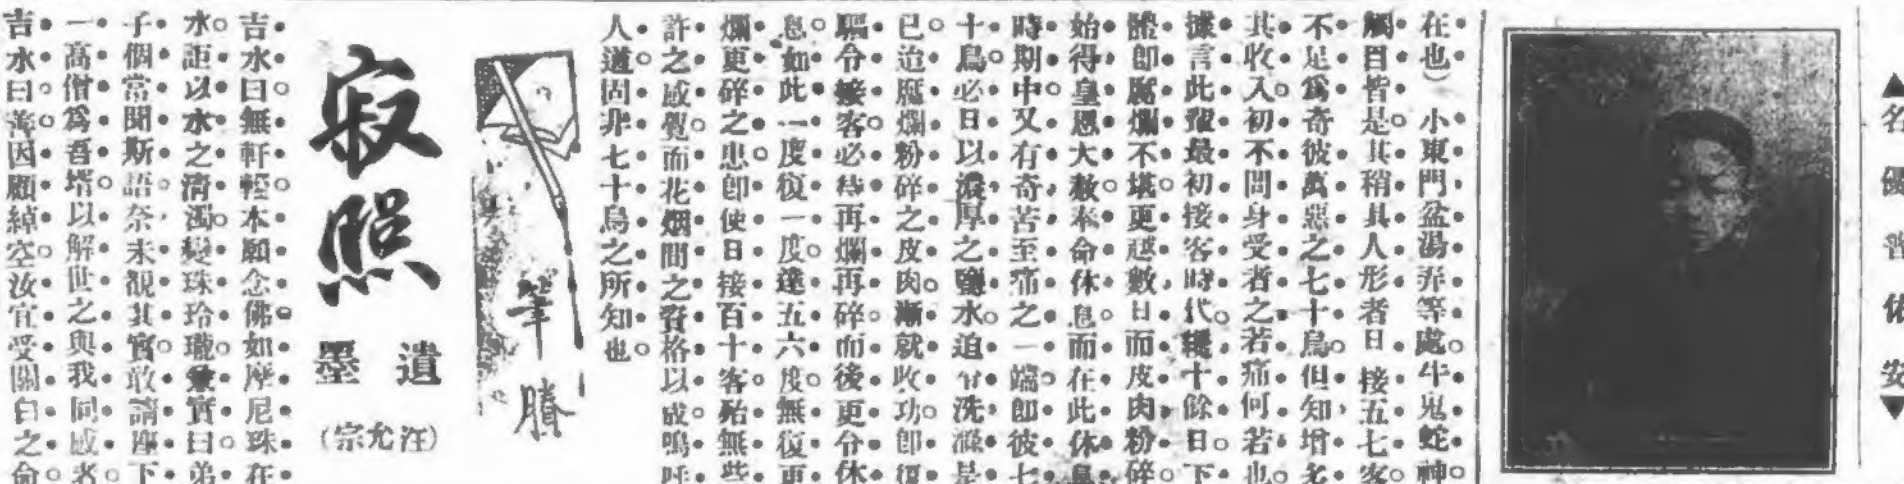 ▲名優曾佑安▼
在也）小東門盆湯弄等處。牛鬼蛇神。
觸目皆是。其稍具人形者。日接五七客。
不足爲奇。彼萬惡之七十鳥。但知增多
其收入。初不問身受者之若痛何若也。
據言此輩最初接客時代。輒十餘日。下
體即腐爛不堪。更越數日。而皮肉粉碎。
始得皇恩大赦。本命休息。而在此休息
時期中。又有奇苦至痛之一端。即彼七
十鳥。必日以濃厚之鹽水。迫令洗滌。是
已迨腐爛粉碎之皮肉。漸就收功。即復
驅令接客。必待再爛再碎。而後更令休
息。如此一度復一度。達五六度。無復更
爛更碎之患。即使日接百十客。殆無些
許之感覺。而花烟間之資格以成。嗚呼
人道。固非七十鳥之所知也。
筆賸
寂照
遺墨
（汪允宗）
吉水曰。無軒輊。本願念佛。如摩尼珠在
水。詎以水之清濁。變珠玲瓏。彙實曰。弟
子個當聞斯語。奈未覩其實。敢請座下
一高僧爲吾壻。以解世之與我同感者。
吉水曰。善因願綽空。汝宜受關白之命。